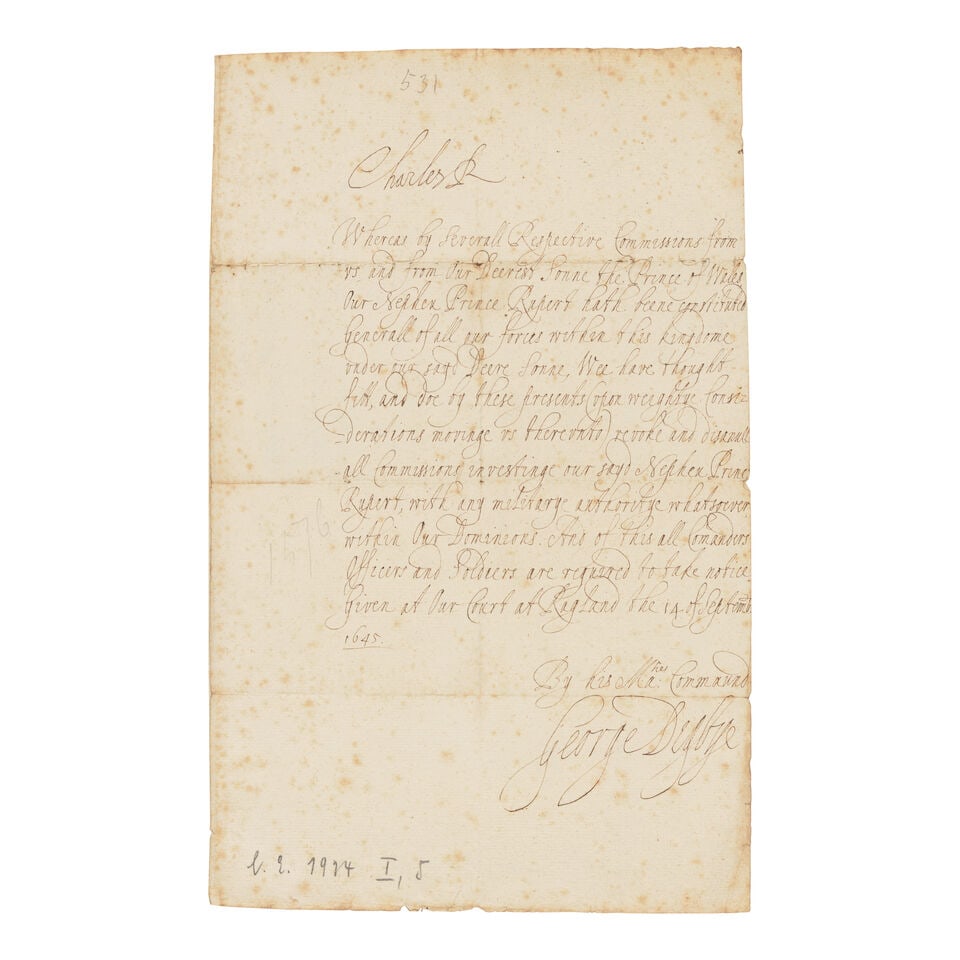 531
Charles R
Whereas by Severall Respective Commissions from
vs and from Our Deerest Sonne the Prince of Wales
Our Nephew Prince Rupert hath beene constituted
Generall of all our forces within this kingdome
vnder our sayd Deere Sonne, Wee have thought
fitt, and doe by these presents (vpon weightye Consi-
derations movinge vs therevnto) revoke and disanull
all Commissions investinge our sayd Nephew Prince
Rupert, with any militarye authoritye whatsoever
within Our Dominions. And of this all Comanders
Officers and Soldiers are required to take notice
Given at Our Court at Ragland the 14 of Septemb
1645.
By his Ma:ties Command
George Digbye
1924 I, 5